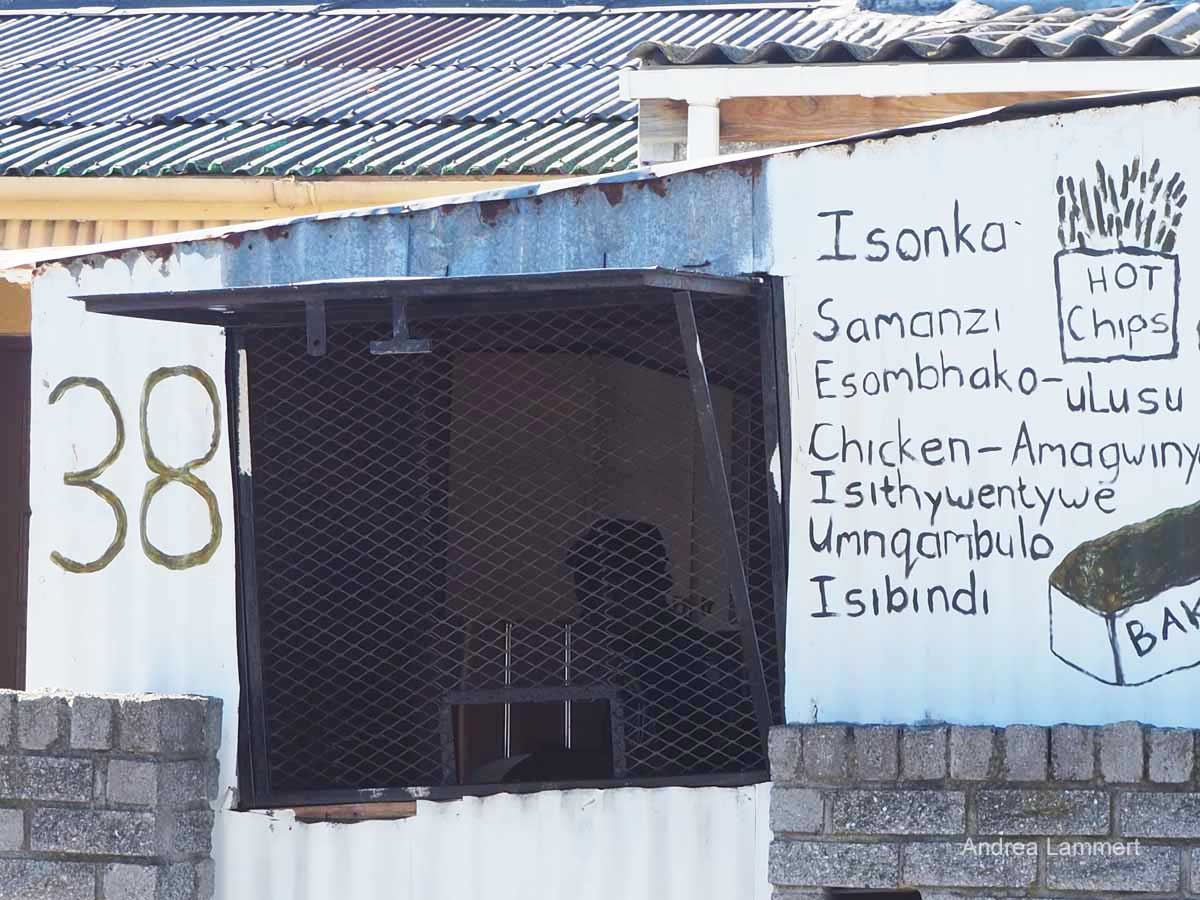 38
Isonka
HOT
Chips
Samanzi
Esombhako-uLusu
Chicken-Amagwiny
Isithywentywe
Umnqambulo
Isibindi
BAK
Andrea Lammert